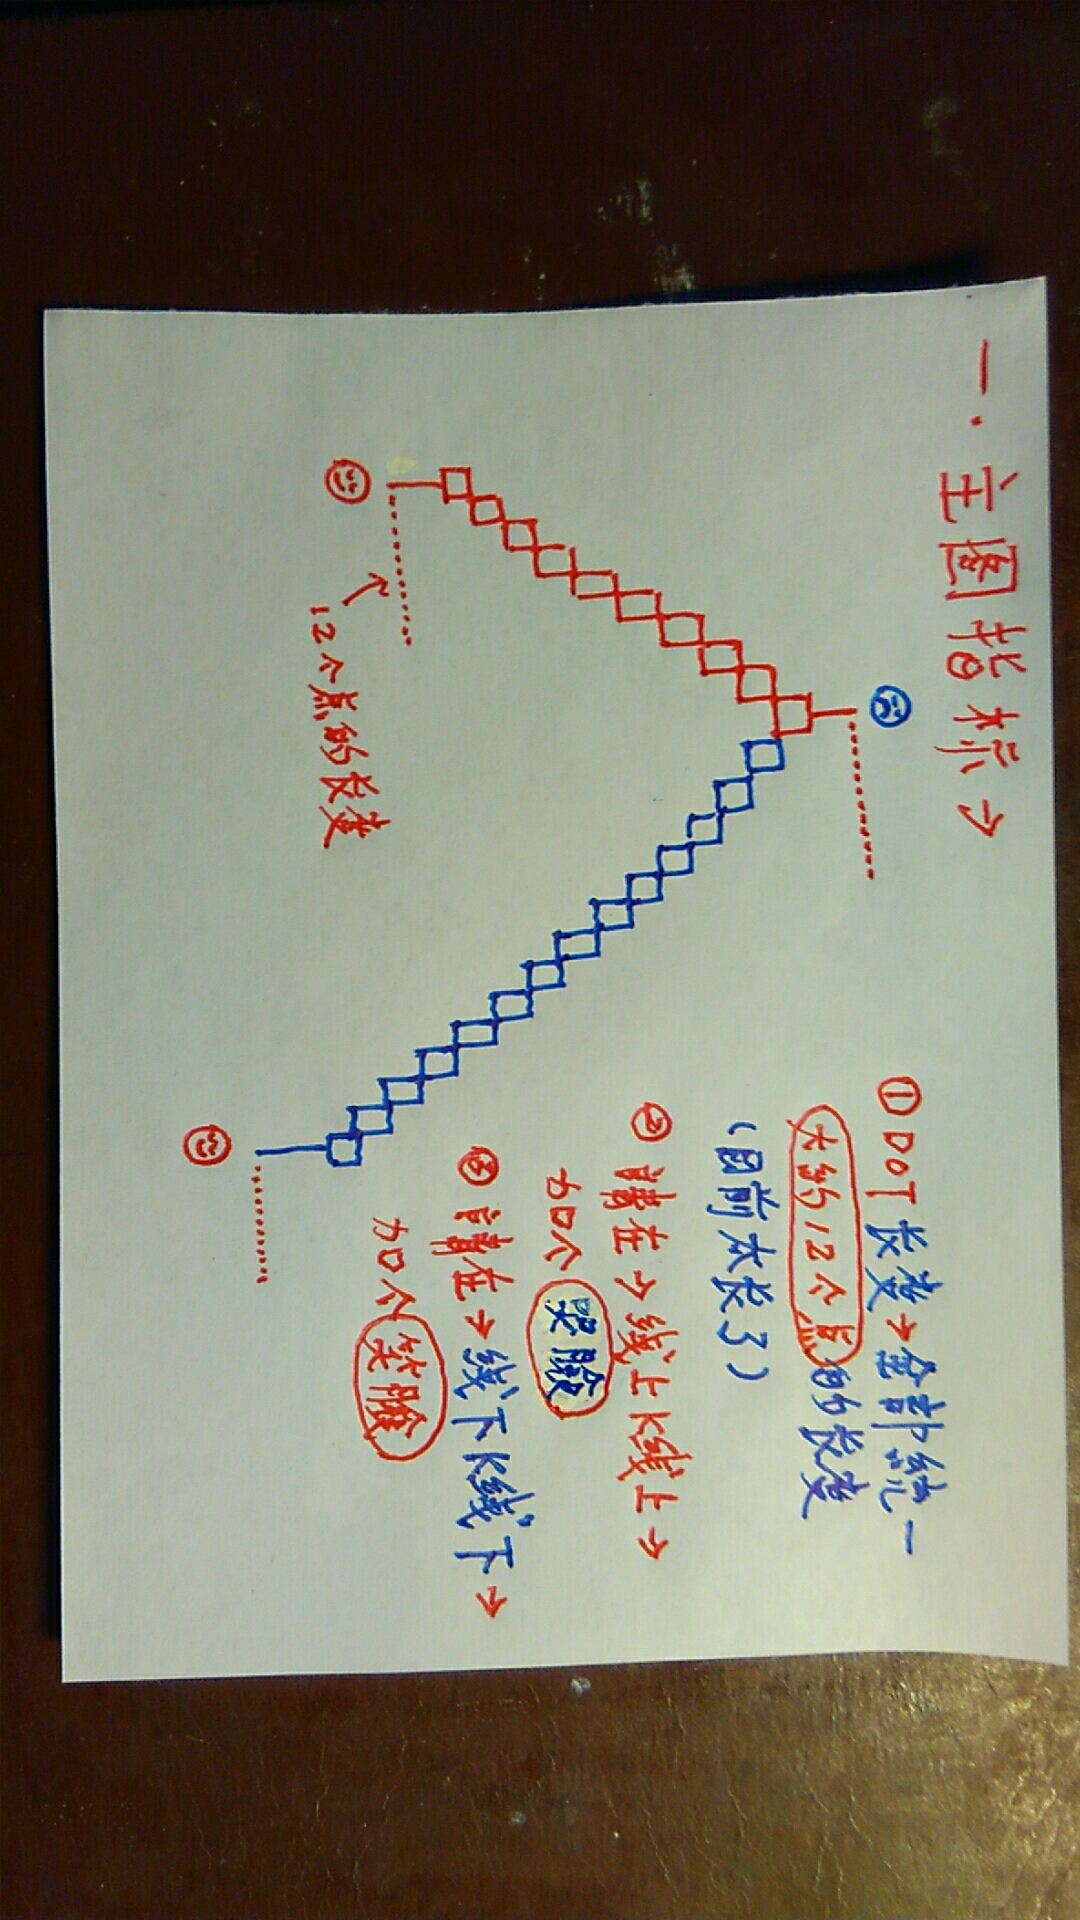 一.主图指标→
①DOT长度→全部統一
大約12个点的长度
(目前太长了)
②請在→线上K线上→
加个哭臉
③請在→线下K线下→
加个笑臉
12个点的长度